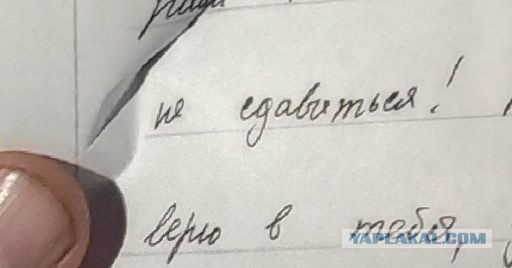 не сдавиться!
верю в тебя,
YAPLAKAL.COM